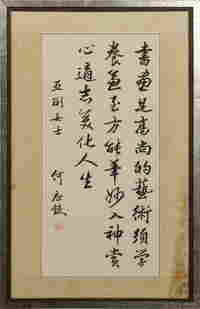 書畫是高尚的藝術須學
養兼至方能筆妙入神賞
心適志美化人生
亞女士
何應欽